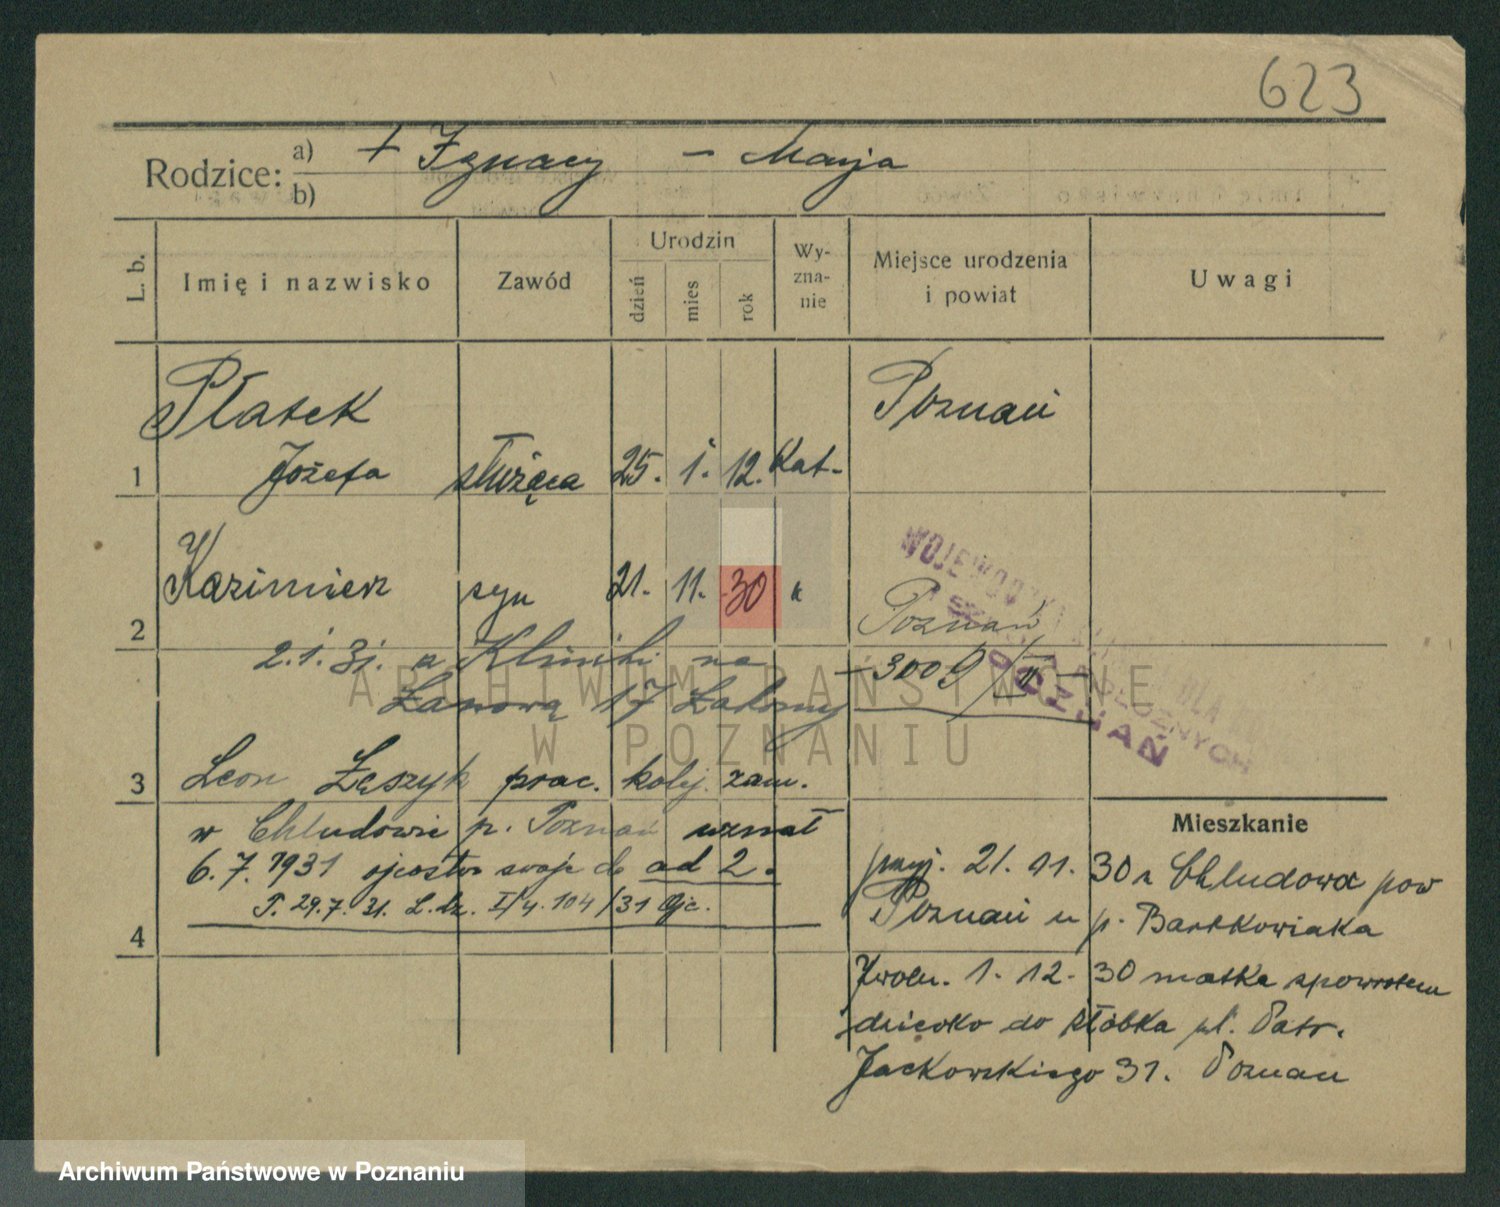 623
Rodzice: a) + Ignacy – Marja
b)
L. b.
Imię i nazwisko
Zawód
Urodzin
dzień
mies
rok
Wy-
zna-
nie
Miejsce urodzenia
i powiat
Uwagi
Płatek
Poznań
1 Józefa służąca 25. 1. 12. Kat-
WOJEWÓDZKA
Kazimierz syn 21. 11. 30 k
Poznań
2
2.1.31. z Kliniki na
3009/II
POZNAŃ
Łanową 17
ARCHIWUM PAŃSTWOWE
W POZNANIU
3 Leon Łęszyk prac. kolej. zam.
w Chludowie p. Poznań uznał
Mieszkanie
6.7.1931 ojcostwo swoje do ad 2.
P. 29.7.31. L.dz. I/4. 104/31
4
21.11.30 z Chludowa pow
Poznań u p. Bartkowiaka
Zwoln. 1.12.30 matka spowrotem
dziecko do żłóbka ul. Patr.
Jackowskiego 31. Poznań
Archiwum Państwowe w Poznaniu